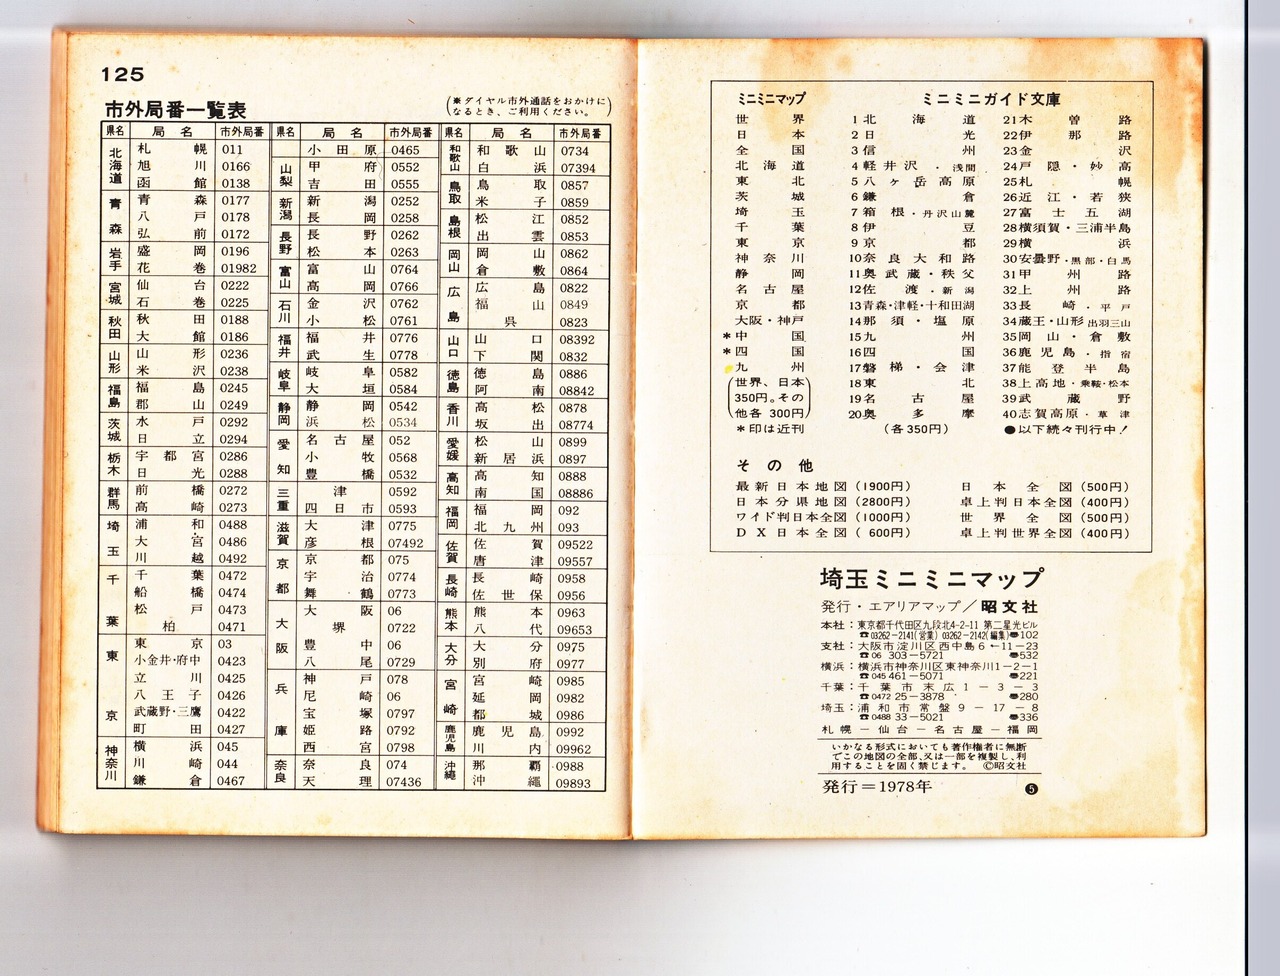 125
市外局番一覧表
(※ダイヤル市外通話をおかけに
なるとき、ご利用ください。)
県名 局名 市外局番
北海道 札幌 011
旭川 0166
函館 0138
青森 青森 0177
八戸 0178
弘前 0172
岩手 盛岡 0196
花巻 01982
宮城 仙台 0222
石巻 0225
秋田 秋田 0188
大館 0186
山形 山形 0236
米沢 0238
福島 福島 0245
郡山 0249
茨城 水戸 0292
日立 0294
栃木 宇都宮 0286
日光 0288
群馬 前橋 0272
高崎 0273
埼玉 浦和 0488
大宮 0486
川越 0492
千葉 千葉 0472
船橋 0474
松戸 0473
柏 0471
東京 東京 03
小金井・府中 0423
立川 0425
八王子 0426
武蔵野・三鷹 0422
町田 0427
神奈川 横浜 045
川崎 044
鎌倉 0467
県名 局名 市外局番
小田原 0465
山梨 甲府 0552
吉田 0555
新潟 新潟 0252
長岡 0258
長野 長野 0262
松本 0263
富山 富山 0764
高岡 0766
石川 金沢 0762
小松 0761
福井 福井 0776
武生 0778
岐阜 岐阜 0582
大垣 0584
静岡 静岡 0542
浜松 0534
愛知 名古屋 052
小牧 0568
豊橋 0532
三重 津 0592
四日市 0593
滋賀 大津 0775
彦根 07492
京都 京都 075
宇治 0774
舞鶴 0773
大阪 大阪 06
堺 0722
豊中 06
八尾 0729
兵庫 神戸 078
尼崎 06
宝塚 0797
姫路 0792
西宮 0798
奈良 奈良 074
天理 07436
県名 局名 市外局番
和歌山 和歌山 0734
白浜 07394
鳥取 鳥取 0857
米子 0859
島根 松江 0852
出雲 0853
岡山 岡山 0862
倉敷 0864
広島 広島 0822
福山 0849
呉 0823
山口 山口 08392
下関 0832
徳島 徳島 0886
阿南 08842
香川 高松 0878
坂出 08774
愛媛 松山 0899
新居浜 0897
高知 高知 0888
南国 08886
福岡 福岡 092
北九州 093
佐賀 佐賀 09522
唐津 09557
長崎 長崎 0958
佐世保 0956
熊本 熊本 0963
八代 09653
大分 大分 0975
別府 0977
宮崎 宮崎 0985
延岡 0982
都城 0986
鹿児島 鹿児島 0992
川内 09962
沖縄 那覇 0988
沖縄 09893
ミニミニマップ
世界
日本
全国
北海道
東北
茨城
埼玉
千葉
東京
神奈川
静岡
名古屋
京都
大阪・神戸
*中国
*四国
九州
(世界、日本
350円。その
他各 300円)
*印は近刊
ミニミニガイド文庫
1 北海道
2 日光
3 信州
4 軽井沢・浅間
5 八ヶ岳高原
6 鎌倉
7 箱根・丹沢山麓
8 伊豆
9 京都
10 奈良大和路
11 奥武蔵・秩父
12 佐渡・新潟
13 青森・津軽・十和田湖
14 那須・塩原
15 九州
16 四国
17 磐梯・会津
18 東北
19 名古屋
20 奥多摩
(各350円)
21 木曽路
22 伊那路
23 金沢
24 戸隠・妙高
25 札幌
26 近江・若狭
27 富士五湖
28 横須賀・三浦半島
29 横浜
30 安曇野・黒部・白馬
31 甲州路
32 上州路
33 長崎・平戸
34 蔵王・山形出羽三山
35 岡山・倉敷
36 鹿児島・指宿
37 能登半島
38 上高地・乗鞍・松本
39 武蔵野
40 志賀高原・草津
●以下続々刊行中!
その他
最新日本地図(1900円)
日本分県地図(2800円)
ワイド判日本全図(1000円)
DX日本全図(600円)
日本全図(500円)
卓上判日本全図(400円)
世界全図(500円)
卓上判世界全図(400円)
埼玉ミニミニマップ
発行・エアリアマップ/昭文社
本社:東京都千代田区九段北4-2-11 第二星光ビル
☎03262-2141(営業) 03262-2142(編集)〠102
支社:大阪市淀川区西中島6-11-23
☎06 303-5721 〠532
横浜:横浜市神奈川区東神奈川1-2-1
☎045 461-5071 〠221
千葉:千葉市末広1-3-3
☎0472 25-3878 〠280
埼玉:浦和市常盤9-17-8
☎0488 33-5021 〠336
札幌-仙台-名古屋-福岡
いかなる形式においても著作権者に無断
でこの地図の全部、又は一部を複製し、利
用することを固く禁じます。 ©昭文社
発行=1978年
❺